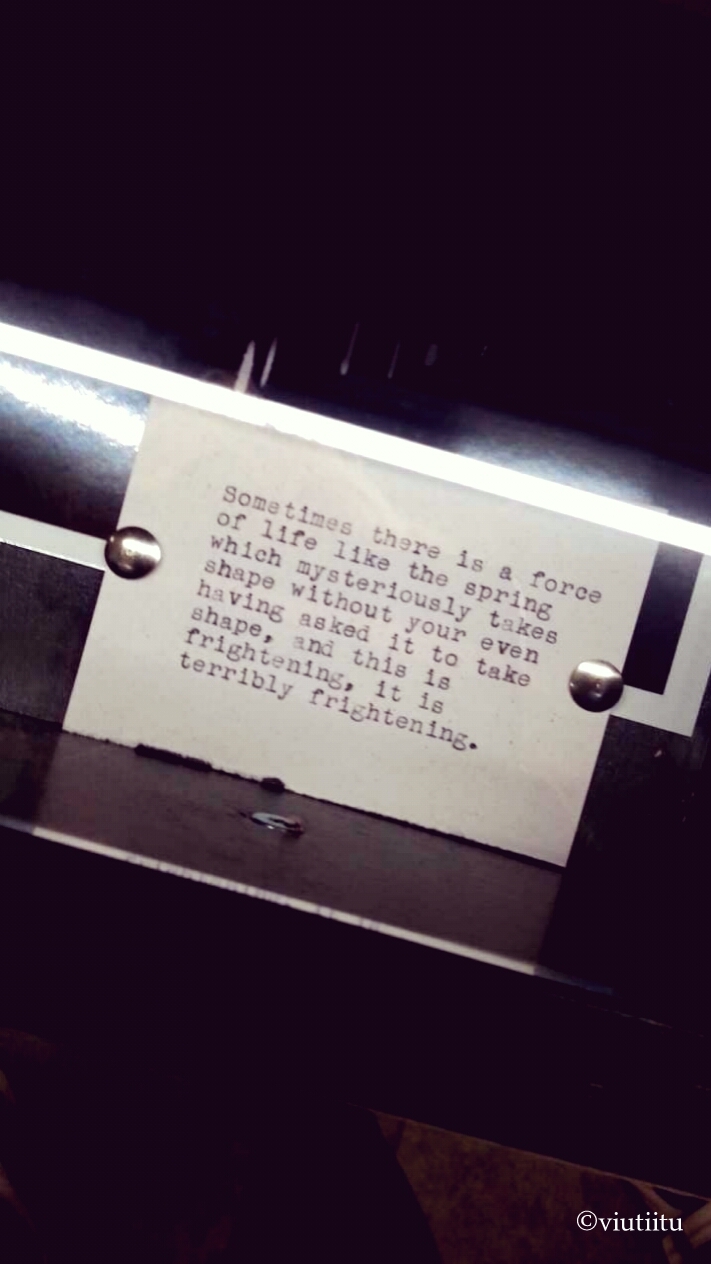 Sometimes there is a force
of life like the spring
which mysteriously takes
shape without your even
having asked it to take
shape, and this is
frightening, it is
terribly frightening.
©viutiitu